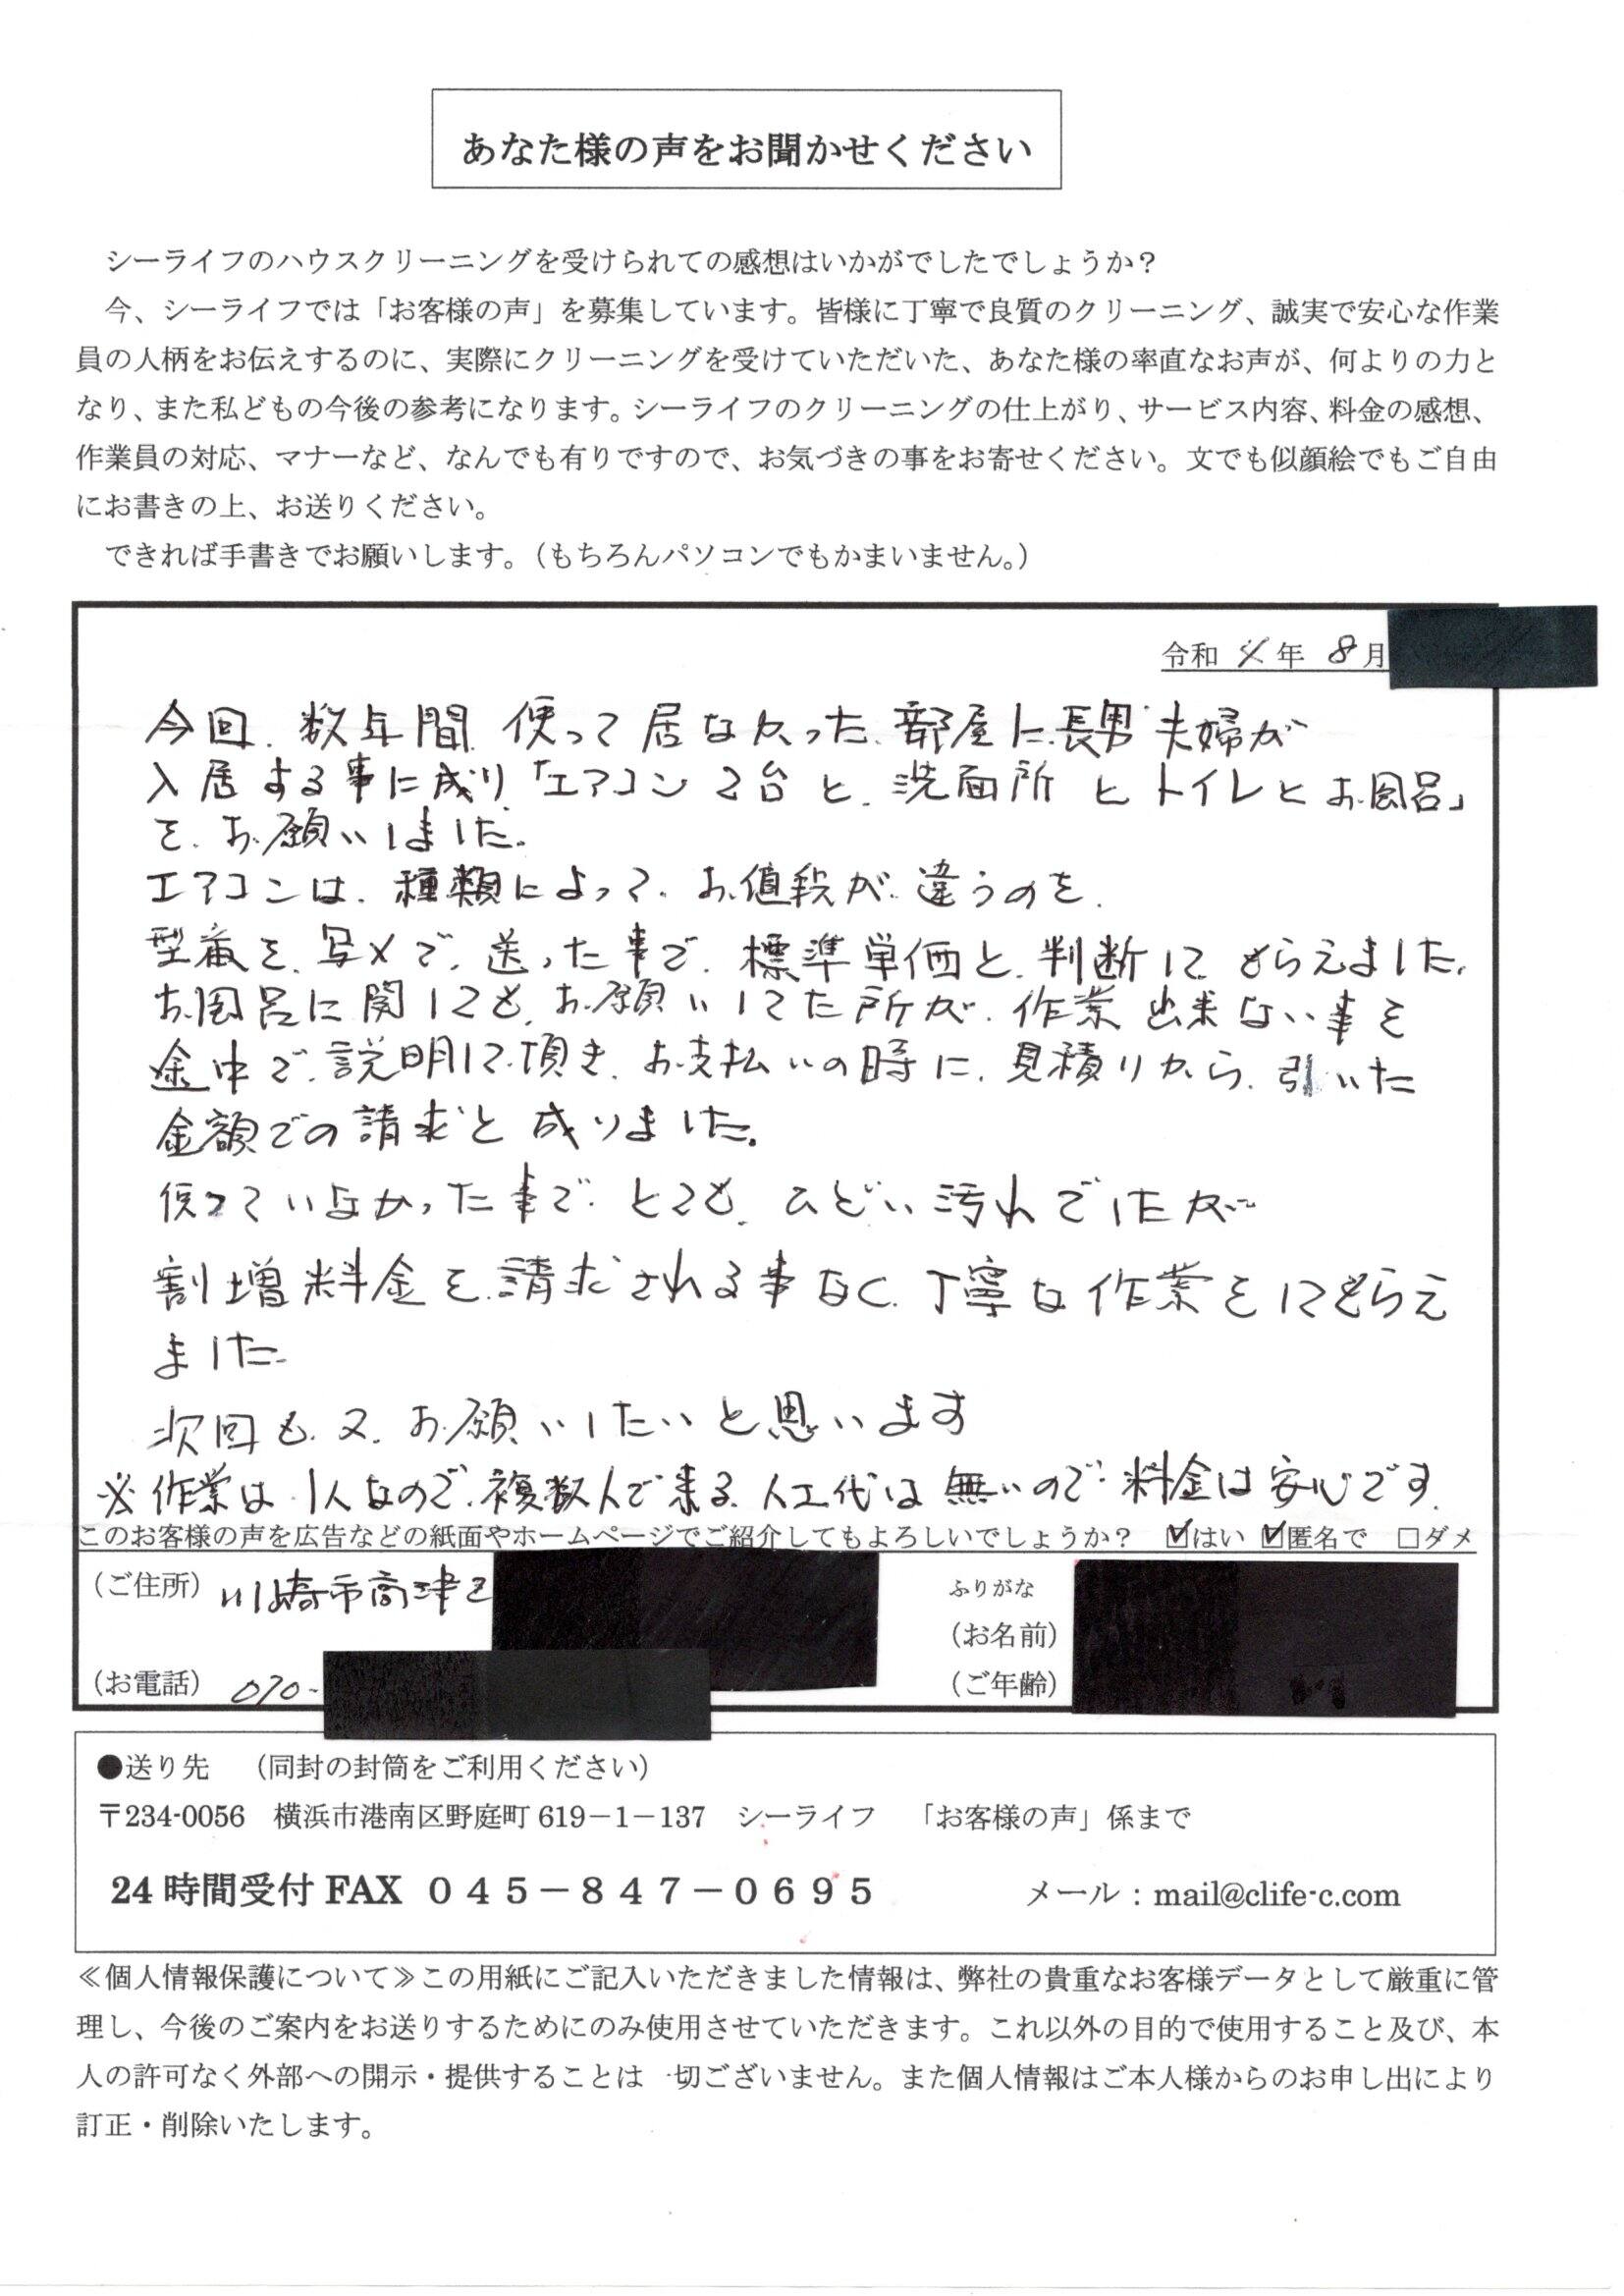 あなた様の声をお聞かせください
シーライフのハウスクリーニングを受けられての感想はいかがでしたでしょうか？
今、シーライフでは「お客様の声」を募集しています。皆様に丁寧で良質のクリーニング、誠実で安心な作業
員の人柄をお伝えするのに、実際にクリーニングを受けていただいた、あなた様の率直なお声が、何よりの力と
なり、また私どもの今後の参考になります。シーライフのクリーニングの仕上がり、サービス内容、料金の感想、
作業員の対応、マナーなど、なんでも有りですので、お気づきの事をお寄せください。文でも似顔絵でもご自由
にお書きの上、お送りください。
できれば手書きでお願いします。（もちろんパソコンでもかまいません。）
令和 4 年 8 月
今回、数年間、使って居なかった、部屋に、長男夫婦が
入居する事に成り「エアコン2台と、洗面所とトイレとお風呂」
を、お願いしました。
エアコンは、種類によって、お値段が、違うのを、
型番を、写メで、送った事で、標準単価と、判断して、もらえました。
お風呂に関しても、お願いしてた所が、作業出来ない事を
途中で、説明して、頂き、お支払いの時に、見積りから、引いた
金額での請求と成りました。
使っていなかった事で、とても、ひどい汚れでしたが
割増料金を、請求される事なく、丁寧な作業をしてもらえ
ました。
次回も、又、お願いしたいと思います
※作業は、1人なので、複数人で来る、人工代は無いので、料金は安心です。
このお客様の声を広告などの紙面やホームページでご紹介してもよろしいでしょうか？ ☑はい ☑匿名で □ダメ
（ご住所）川崎市高津区
ふりがな
（お名前）
（お電話） 070-
（ご年齢）
●送り先 （同封の封筒をご利用ください）
〒234-0056 横浜市港南区野庭町 619－1－137 シーライフ 「お客様の声」係まで
24 時間受付 FAX ０４５－８４７－０６９５ メール：mail@clife-c.com
≪個人情報保護について≫この用紙にご記入いただきました情報は、弊社の貴重なお客様データとして厳重に管
理し、今後のご案内をお送りするためにのみ使用させていただきます。これ以外の目的で使用すること及び、本
人の許可なく外部への開示・提供することは一切ございません。また個人情報はご本人様からのお申し出により
訂正・削除いたします。